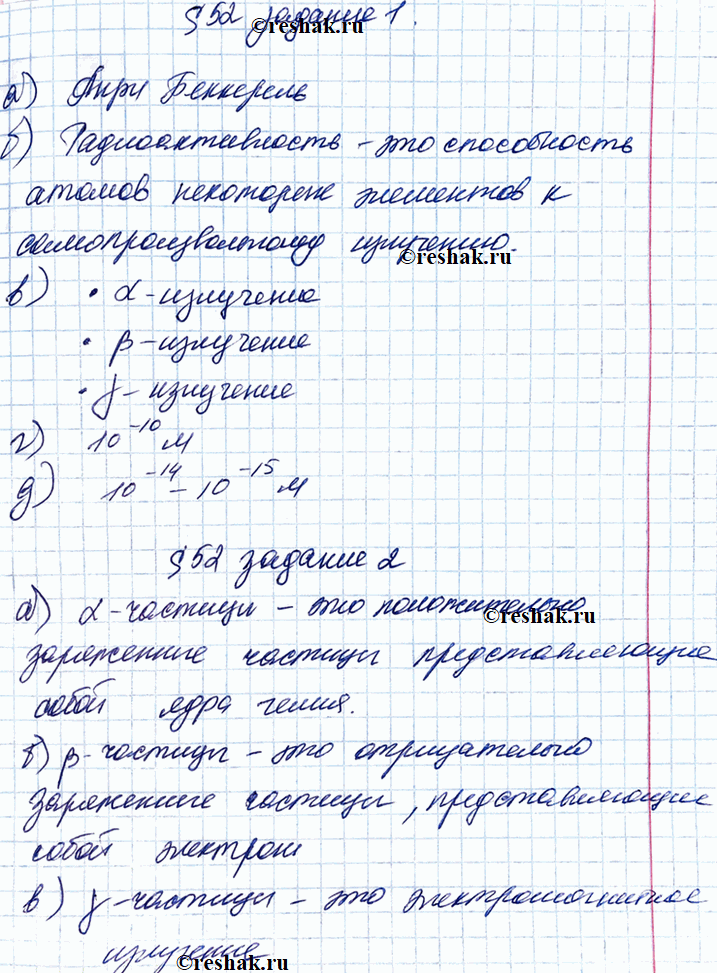 §52 задание 1.
©reshak.ru
а) Анри Беккерель
б) Радиоактивность – это способность
атомов некоторые элементов к
самопроизвольному излучению.
©reshak.ru
в) • α-излучение
• β-излучение
• γ-излучение
г) 10⁻¹⁰ м
д) 10⁻¹⁴ – 10⁻¹⁵ м
§52 задание 2
а) α-частицы – это положительно
©reshak.ru
заряженные частицы представляющие
собой ядра гелия.
б) β-частицы – это отрицательно
заряженные частицы, представляющие
собой электрон
в) γ-частицы – это электромагнитное
излучение
©reshak.ru